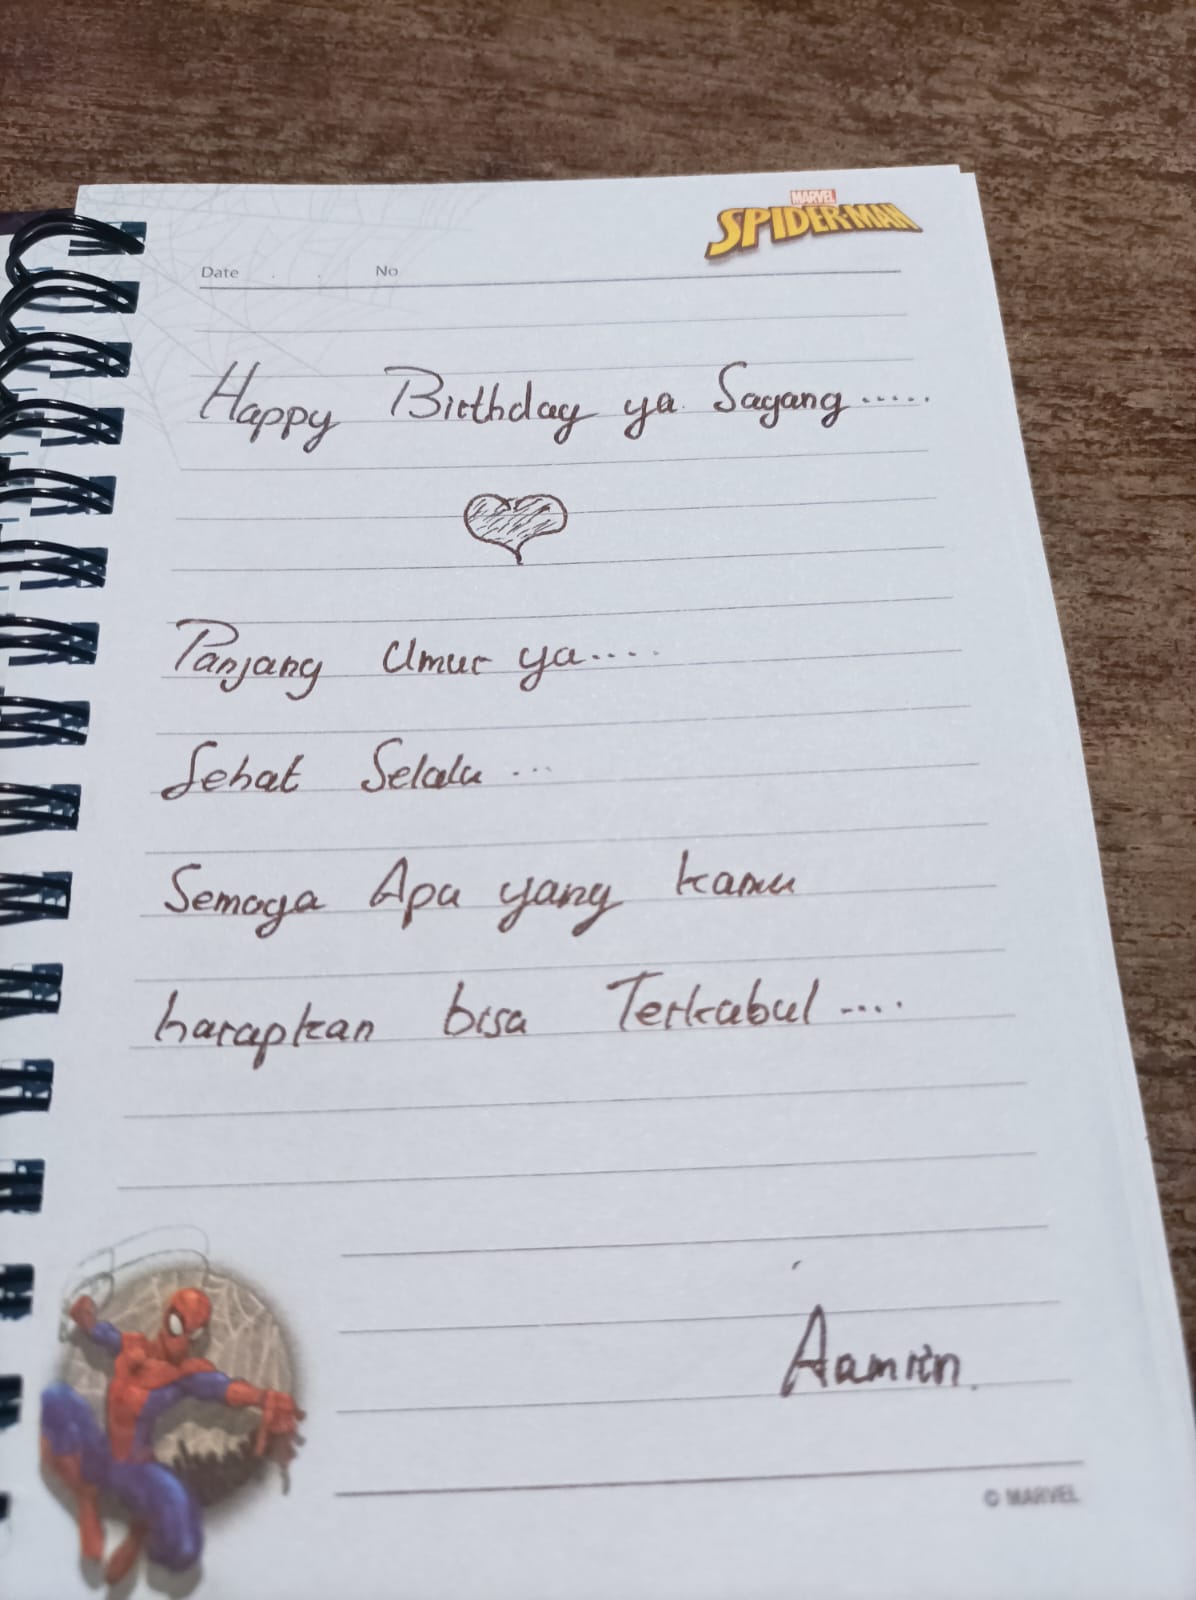 MARVEL
SPIDER-MAN
Date . . No
Happy Birthday ya Sayang.....
Panjang Umur ya....
Sehat Selalu ...
Semoga Apa yang kamu
harapkan bisa Terkabul ....
Aamiin.
© MARVEL